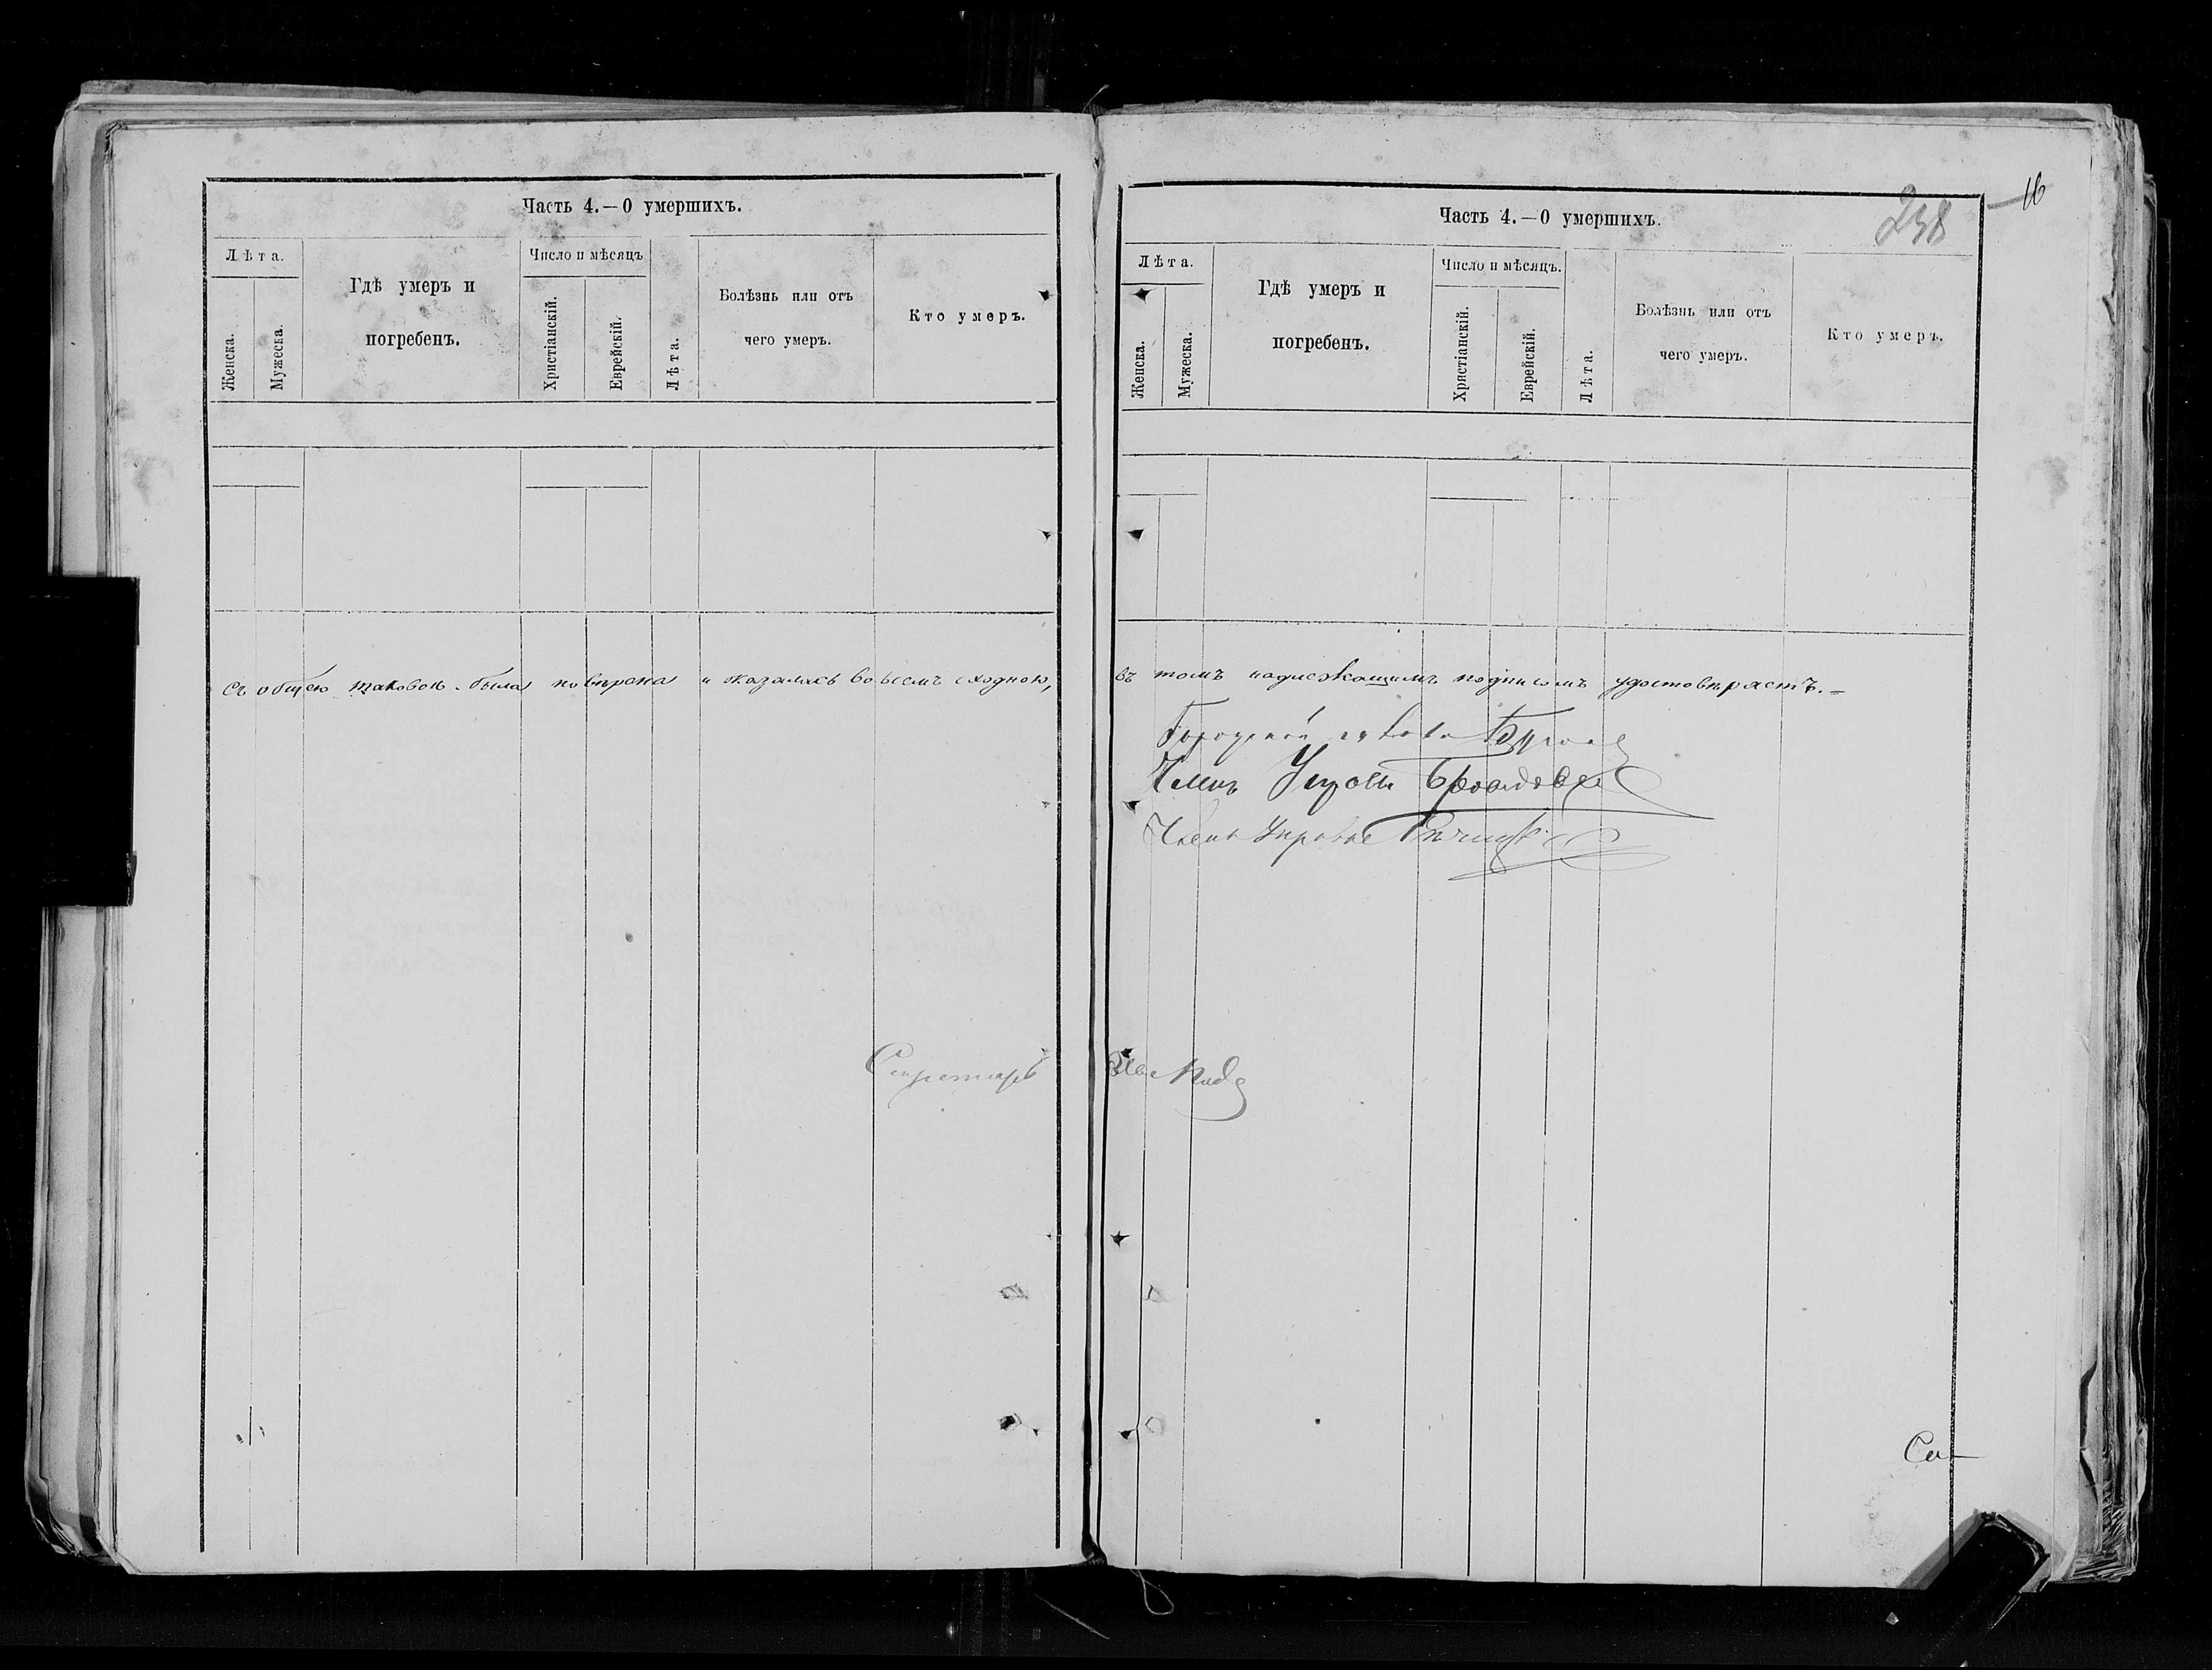 Часть 4.—О умершихъ.
Лѣта.
Женска.
Мужеска.
Гдѣ умеръ и
погребенъ.
Число и мѣсяцъ
Христіанскій.
Еврейскій.
Лѣта.
Болѣзнь или отъ
чего умеръ.
Кто умеръ.
съ общею таковою была повѣрена и оказалась во всемъ сходною,
Секретарь
16
238
Часть 4.—О умершихъ.
Лѣта.
Женска.
Мужеска.
Гдѣ умеръ и
погребенъ.
Число и мѣсяцъ.
Христіанскій.
Еврейскій.
Лѣта.
Болѣзнь или отъ
чего умеръ.
Кто умеръ.
въ томъ надлежащимъ подписомъ удостовѣряетъ.—
Городской голова
Членъ Управы
Членъ Управы
Са-